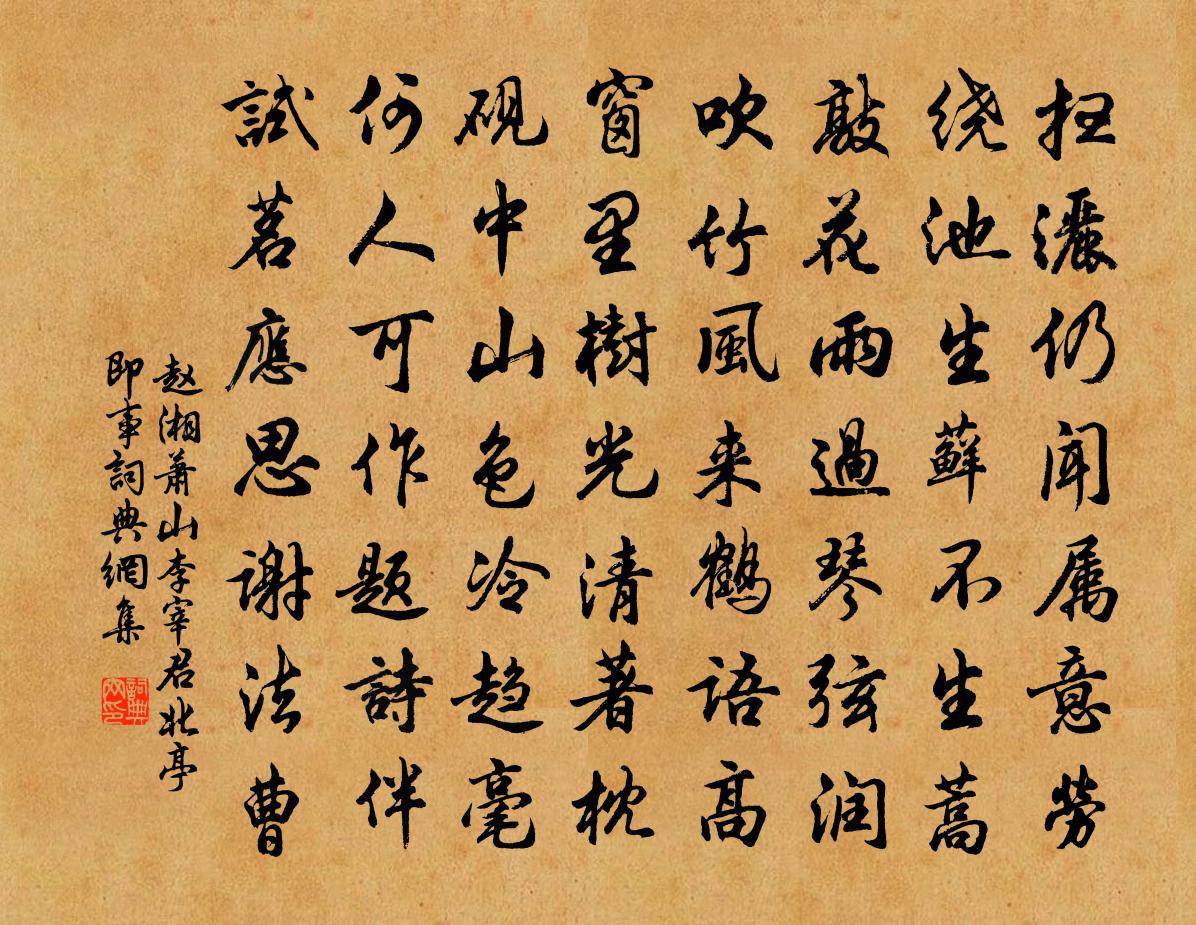 扫灑仍闻厲意勞
绕池生蘚不生蒿
敲花雨過琴弦润
吹竹風来鹤语高
窗里樹光清著枕
砚中山色冷趋毫
何人可作题詩伴
試茗應思谢法曹
赵湘萧山李宰君北亭
即事詞典網集
詞典网印